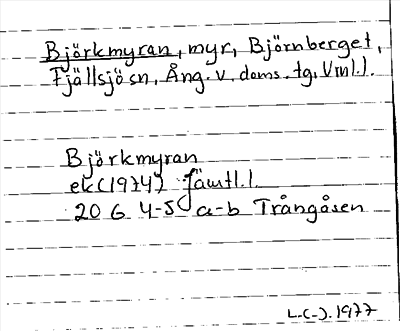 Björkmyran, myr, Björnberget,
Fjällsjö sn, Ång. v. doms. tg, Vnl. l.
Björkmyran
ek (1974) Jämtl. l.
20 G 4-5 a-b Trångåsen
L.(-). 1977